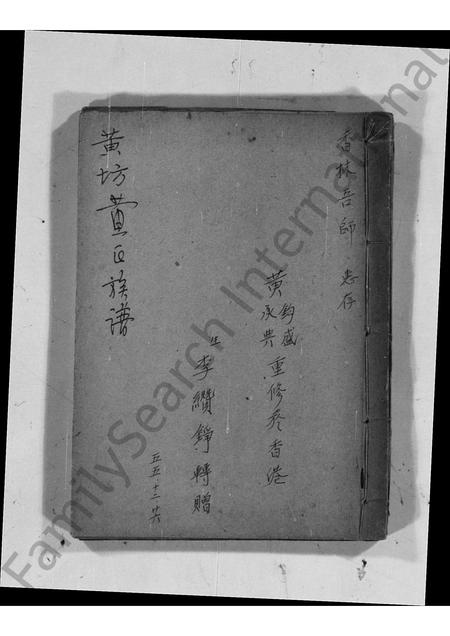 香林吾師 惠存
黃鈞盛
承典
重修於香港
生李纘錚轉贈
五五·十二·廿六
黃坊黃氏族譜
FamilySearch International